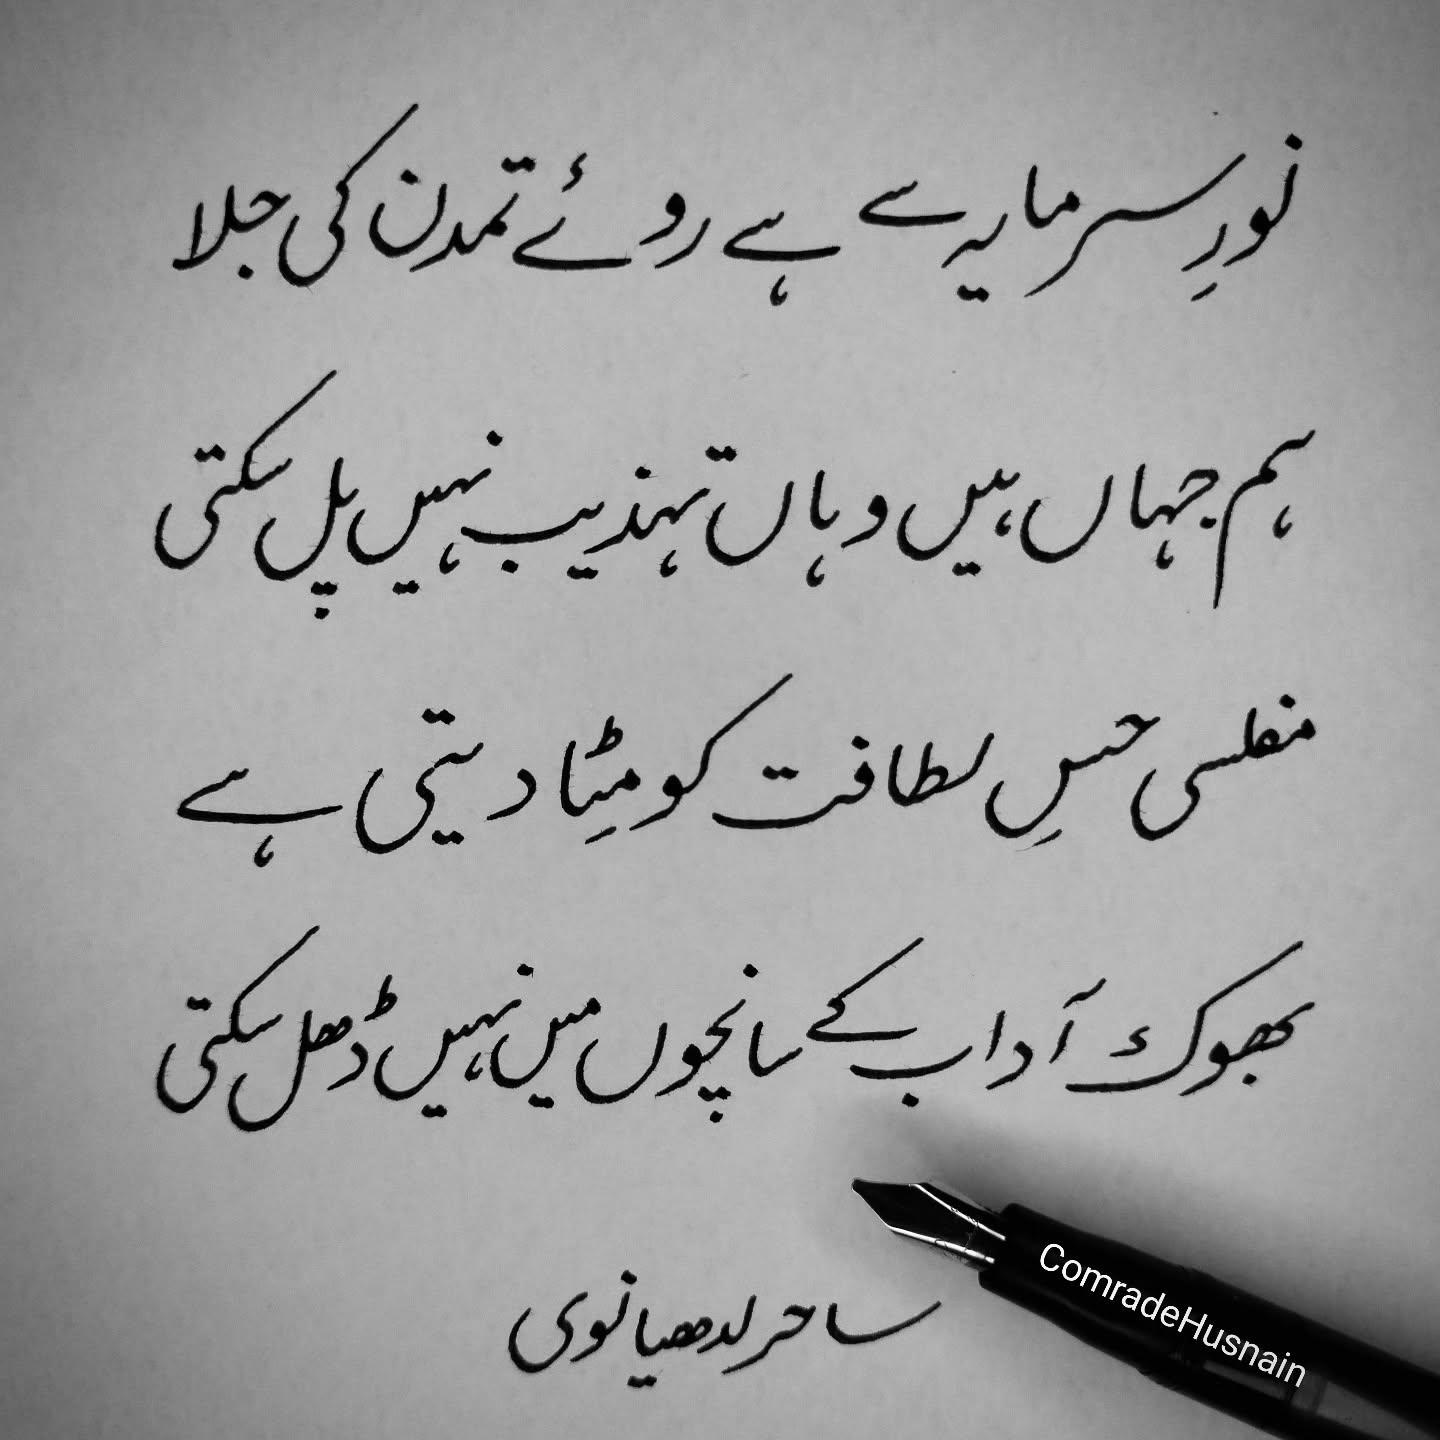 نورِ سرمایہ سے ہے روئے تمدن کی جلا
ہم جہاں ہیں وہاں تہذیب نہیں پل سکتی
مفلسی حسِ لطافت کو مِٹا دیتی ہے
بھوک آداب کے سانچوں میں نہیں ڈھل سکتی
ساحر لدھیانوی
ComradeHusnain